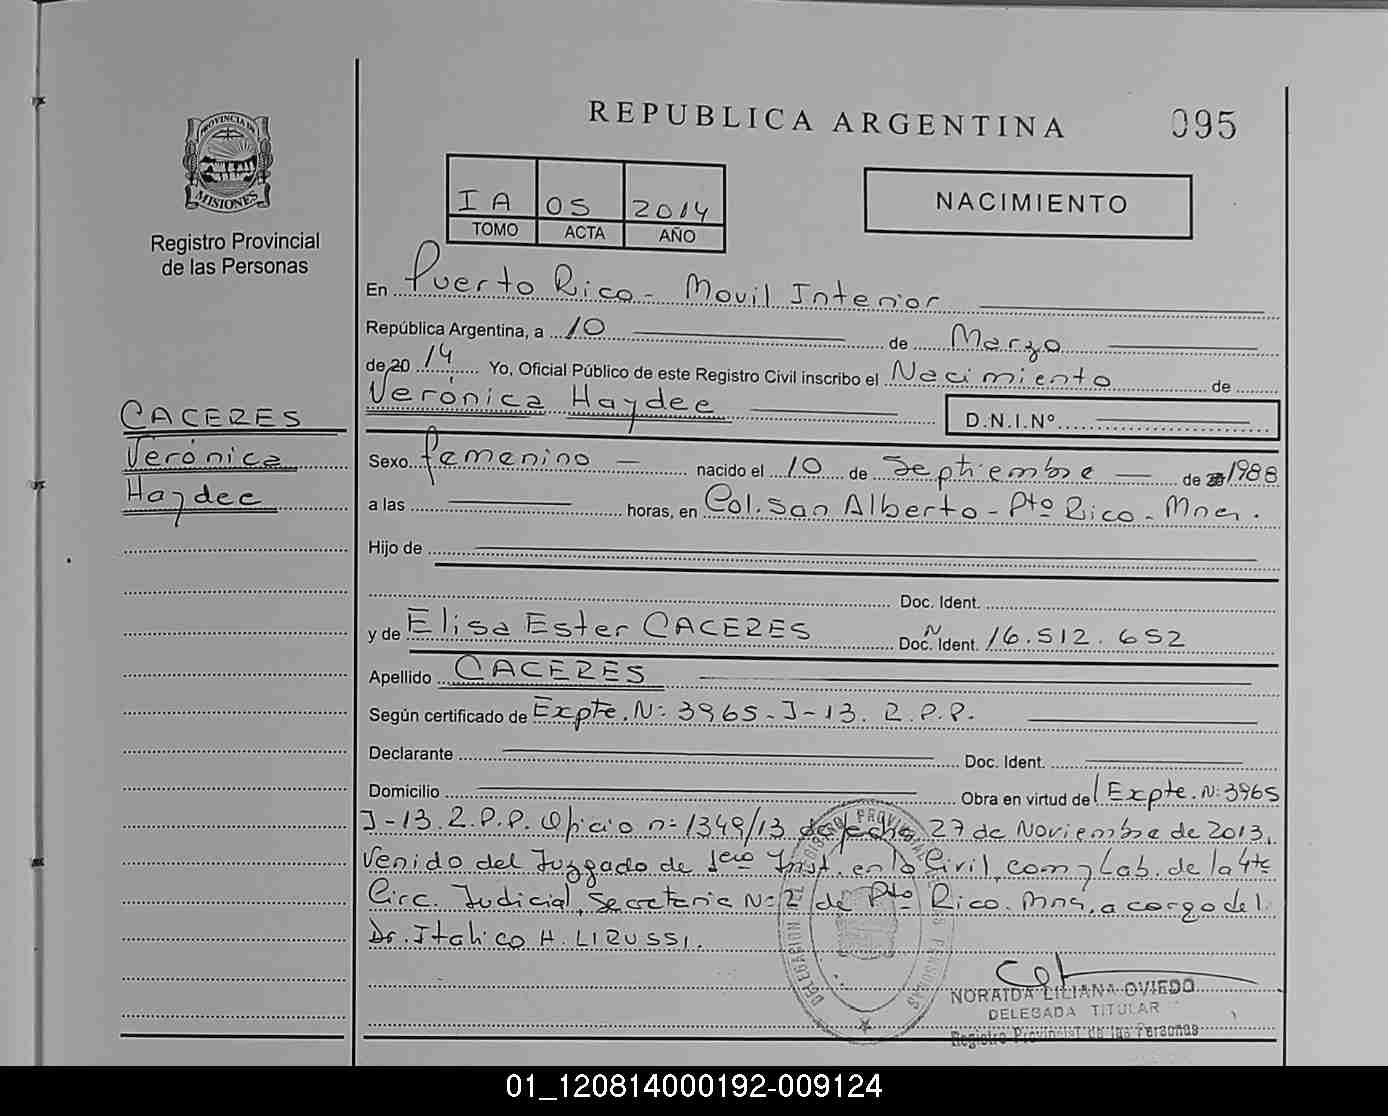 REPUBLICA ARGENTINA
095
PROVINCIA DE
MISIONES
Registro Provincial
de las Personas
IA 05 2014
TOMO ACTA AÑO
NACIMIENTO
En Puerto Rico - Movil Interior
República Argentina, a 10 de Marzo
de 20 14 Yo, Oficial Público de este Registro Civil inscribo el Nacimiento de
Verónica Haydee D.N.I.Nº
CACERES
Verónica
Haydee
Sexo femenino — nacido el 10 de Septiembre — de 1988
a las horas, en Col. San Alberto - Pto Rico - Mnes.
Hijo de
Doc. Ident.
y de Elisa Ester CACERES Doc. Ident. N 16.512.652
Apellido CACERES
Según certificado de Expte. Nº 3965-J-13. R.P.P.
Declarante Doc. Ident.
Domicilio Obra en virtud de Expte. Nº 3965
J-13. R.P.P. Oficio nº 1349/13 de fecha 27 de Noviembre de 2013,
Venido del Juzgado de 1era Inst. en lo Civil, com y Lab. de la 4ta
Circ. Judicial, Secretaria Nº 2 de Pto Rico. Mnes, a cargo del
Dr. Italico H. LIRUSSI.
DELEGACION DEL REGISTRO PROVINCIAL DE LAS PERSONAS
NORAIDA LILIANA OVIEDO
DELEGADA TITULAR
Registro Provincial de las Personas
01_120814000192-009124